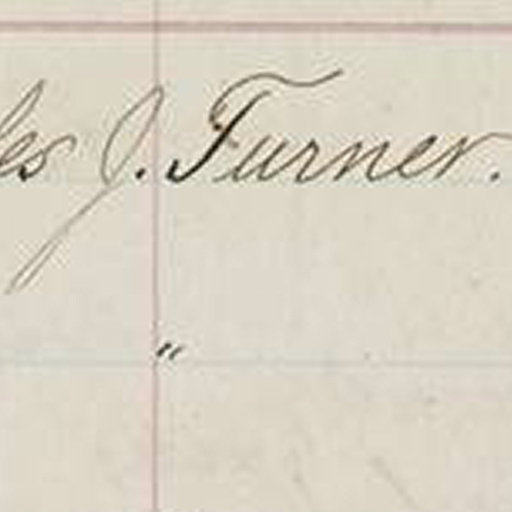 les J. Turner.
"